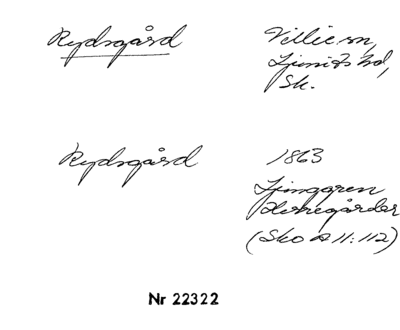 Rydsgård
Villie sn,
Ljunits hd,
Sk.
Rydsgård
1863
Ljunggren
Herregårdar
(Sko A 11:112)
Nr 22322